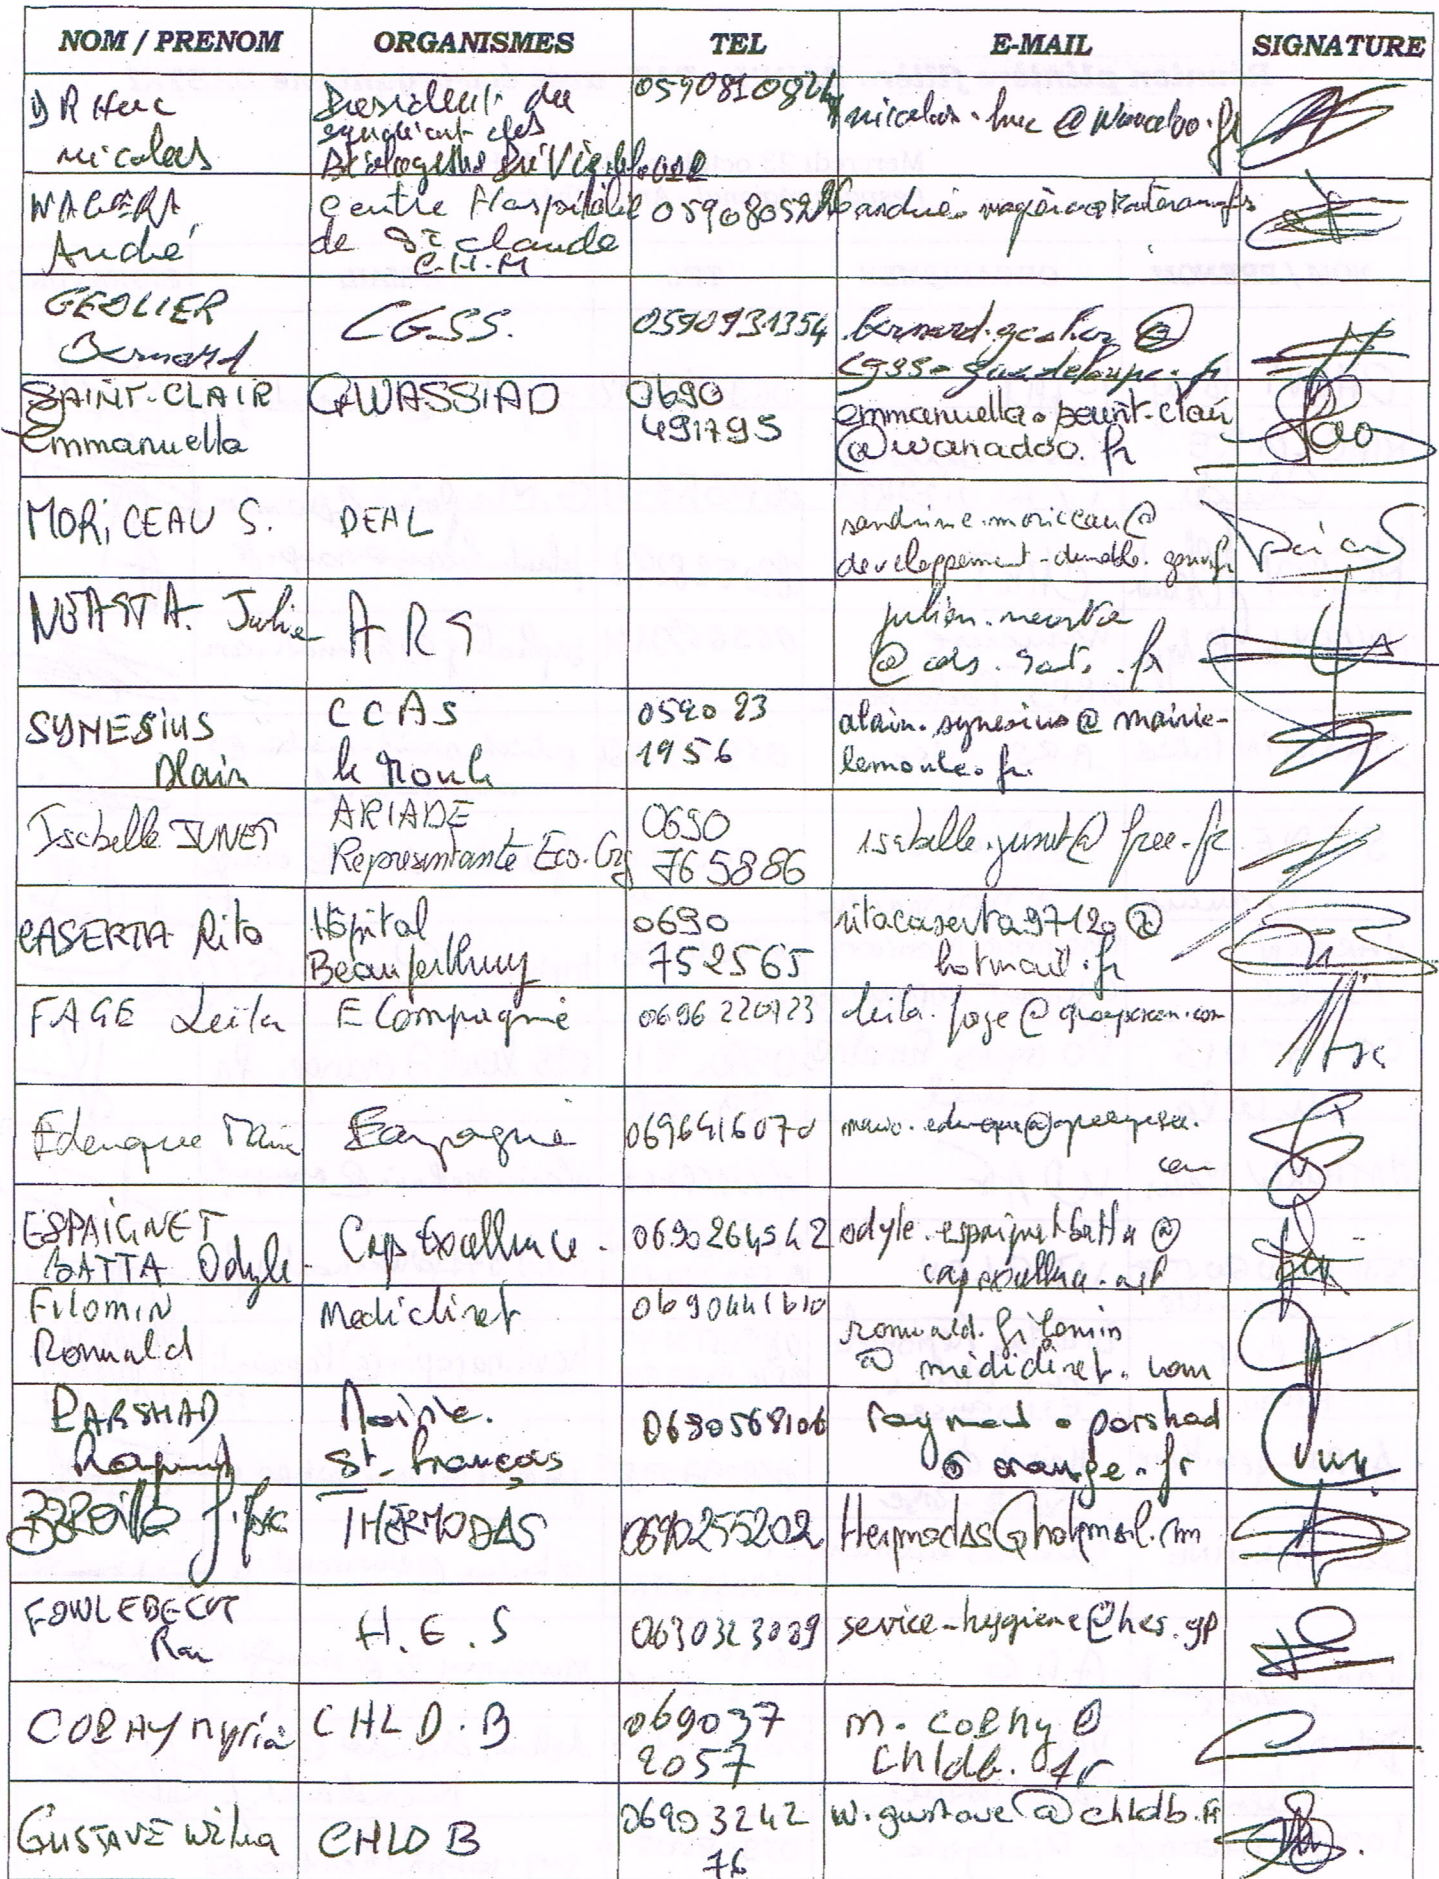 NOM / PRENOM ORGANISMES TEL E-MAIL SIGNATURE
DR Huc
Nicolas
President du
syndicat des
Biologistes
0590810824
nicolas.huc@wanadoo.fr
André
Centre Hospitalier
de St Claude
C.H.M
GEOLIER
Bernard
CGSS.
0590931354
bernard.geolier@
cgss-guadeloupe.fr
SAINT-CLAIR
Emmanuella
GWASSIAD
0690
491795
emmanuella.saint-clair
@wanadoo.fr
MORICEAU S.
DEAL
sandrine.moriceau@
developpement-durable.gouv.fr
ARS
SYNESIUS
Alain
CCAS
le Moule
0590 23
1956
alain.synesius@mairie-
lemoule.fr
Isabelle JUNET
ARIADE
Représentante Eco-Org
0690
765886
isabelle.junet@free.fr
CASERTA Rita
Hôpital
Beauperthuy
0690
752565
ritacaserta97120@
hotmail.fr
FAGE Leila
E Compagnie
0696 220723
leila.fage@
0696416070
com
ESPAIGNET
BATTA Odyle
Cap Excellence.
0690264542
odyle.espaignet-batta@
FILOMIN
Romuald
Medidiret
0690441610
romuald.filomin
@ medidiret.com
PARSHAD
Raymond
Mairie.
St-François
0690568106
raymond.parshad
@ orange.fr
THERMODAS
0690255202
H.E.S
service-hygiene@hes.gp
COEHY Myria
CHLD.B
069037
2057
m.coehy@
chldb.fr
GUSTAVE Wilna
CHLDB
06903242
76
w.gustave@chldb.fr